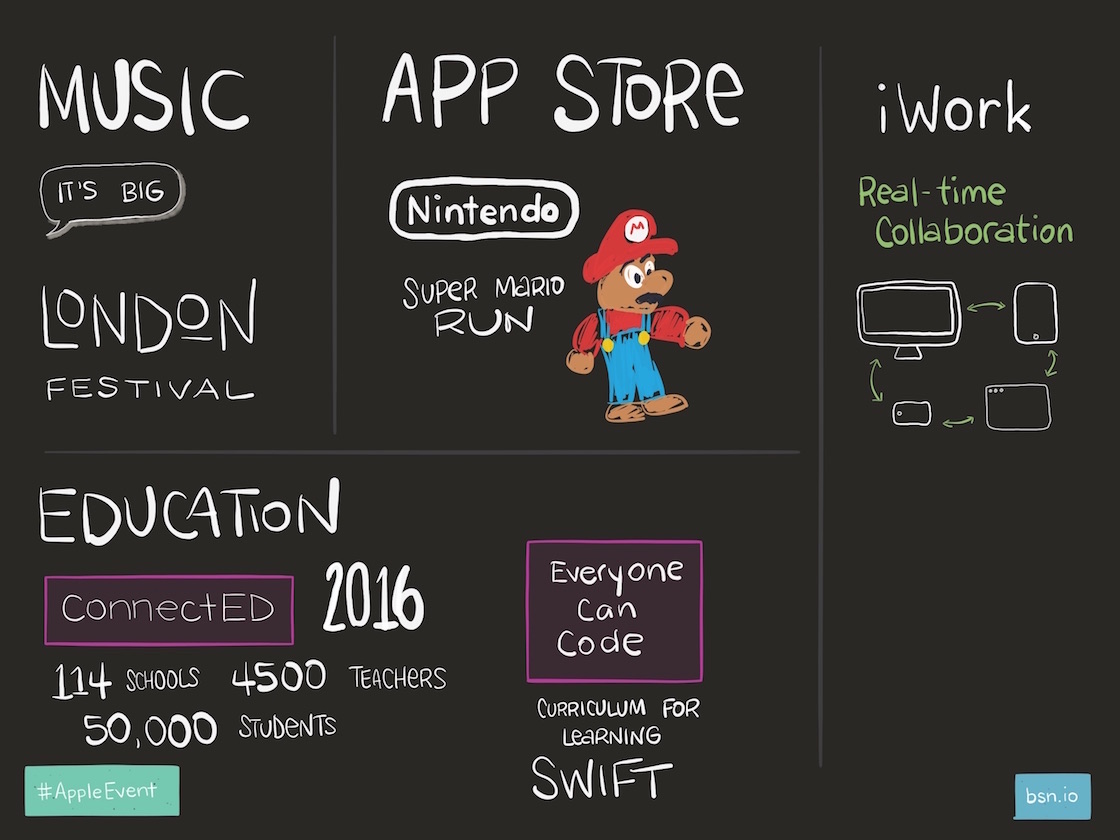 MUSIC
IT'S BIG
LONDON
FESTIVAL
APP STORE
Nintendo
SUPER MARIO
RUN
M
iWork
Real-time
Collaboration
EDUCATION
ConnectED
2016
114 SCHOOLS 4500 TEACHERS
50,000 STUDENTS
Everyone
Can
Code
CURRICULUM FOR
LEARNING
SWIFT
#AppleEvent
bsn.io